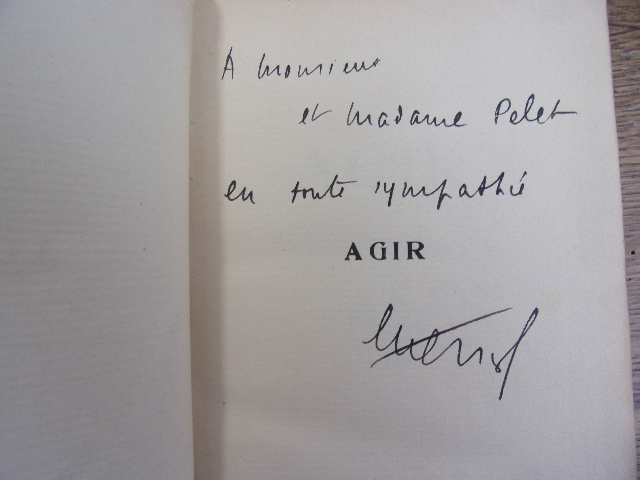 A Monsieur
et Madame Pelet
en toute sympathie
AGIR